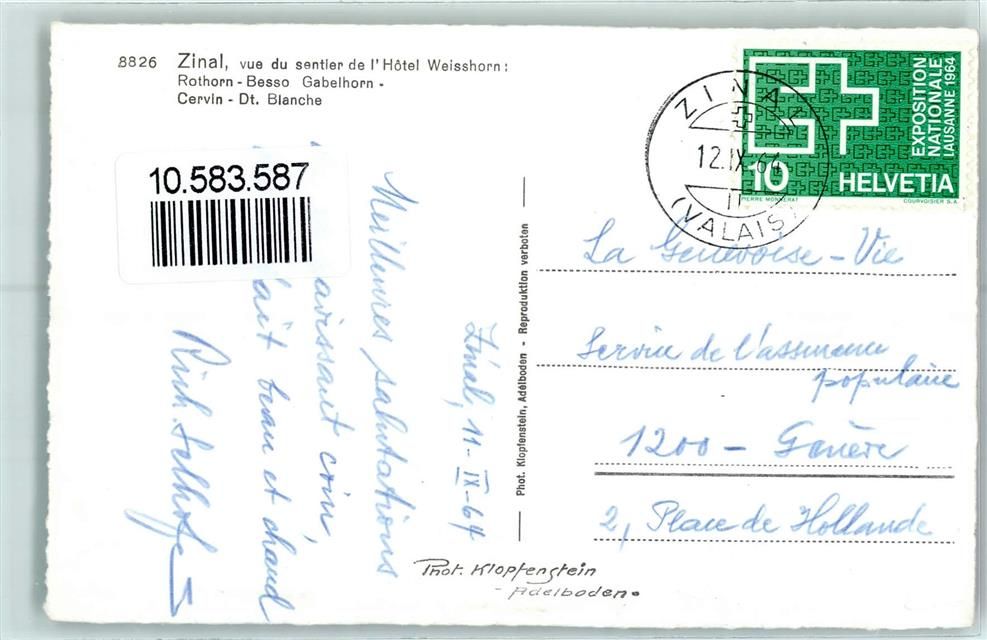 8826 Zinal, vue du sentier de l'Hôtel Weisshorn:
Rothorn - Besso Gabelhorn -
Cervin - Dt. Blanche
10.583.587
EXPOSITION
NATIONALE
LAUSANNE 1964
10 HELVETIA
PIERRE MONNERAT COURVOISIER S.A.
ZINAL
12.IX.64
(VALAIS)
Zinal, 11-IX-64
Meilleures salutations
ravissant coin,
fait beau et chaud
Phot. Klopfenstein, Adelboden - Reproduktion verboten
La Genevoise - Vie
Service de l'assurance
populaire
1200 - Genève
2, Place de Hollande
Phot. Klopfenstein
- Adelboden.